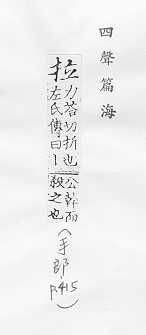 四聲篇海
拉
力荅切折也
左氏傳曰丨
公幹而
殺之也
(手部 p.415)